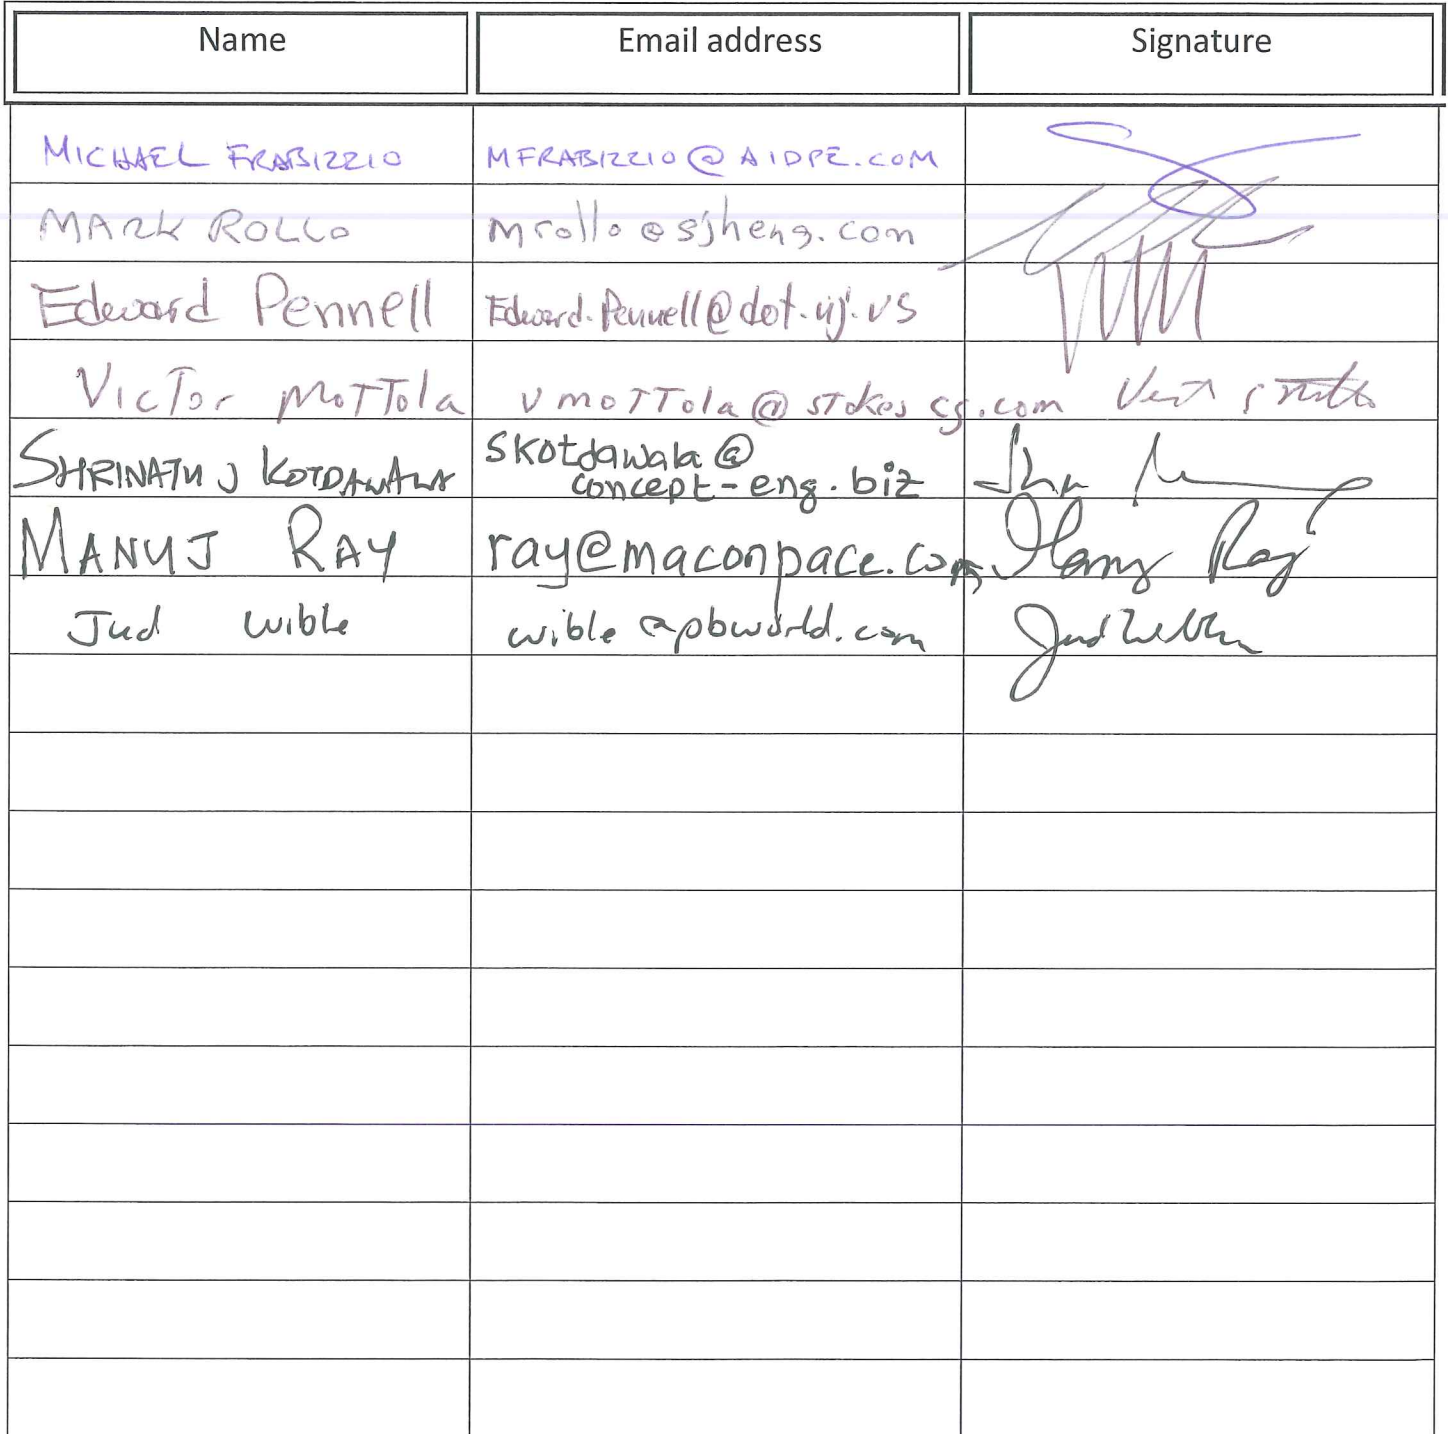 Name Email address Signature
MICHAEL FRABIZZIO MFRABIZZIO@AIDPE.COM
MARK ROLLO mrollo@sjheng.com
Edward Pennell Edward.Pennell@dot.nj.us
Victor Mottola vmottola@stokescg.com
SHRINATH J KOTDAWALA skotdawala@
concept-eng.biz
MANUJ RAY ray@maconpace.com Manuj Ray
Jud Wible wible@pbworld.com Jud Wible